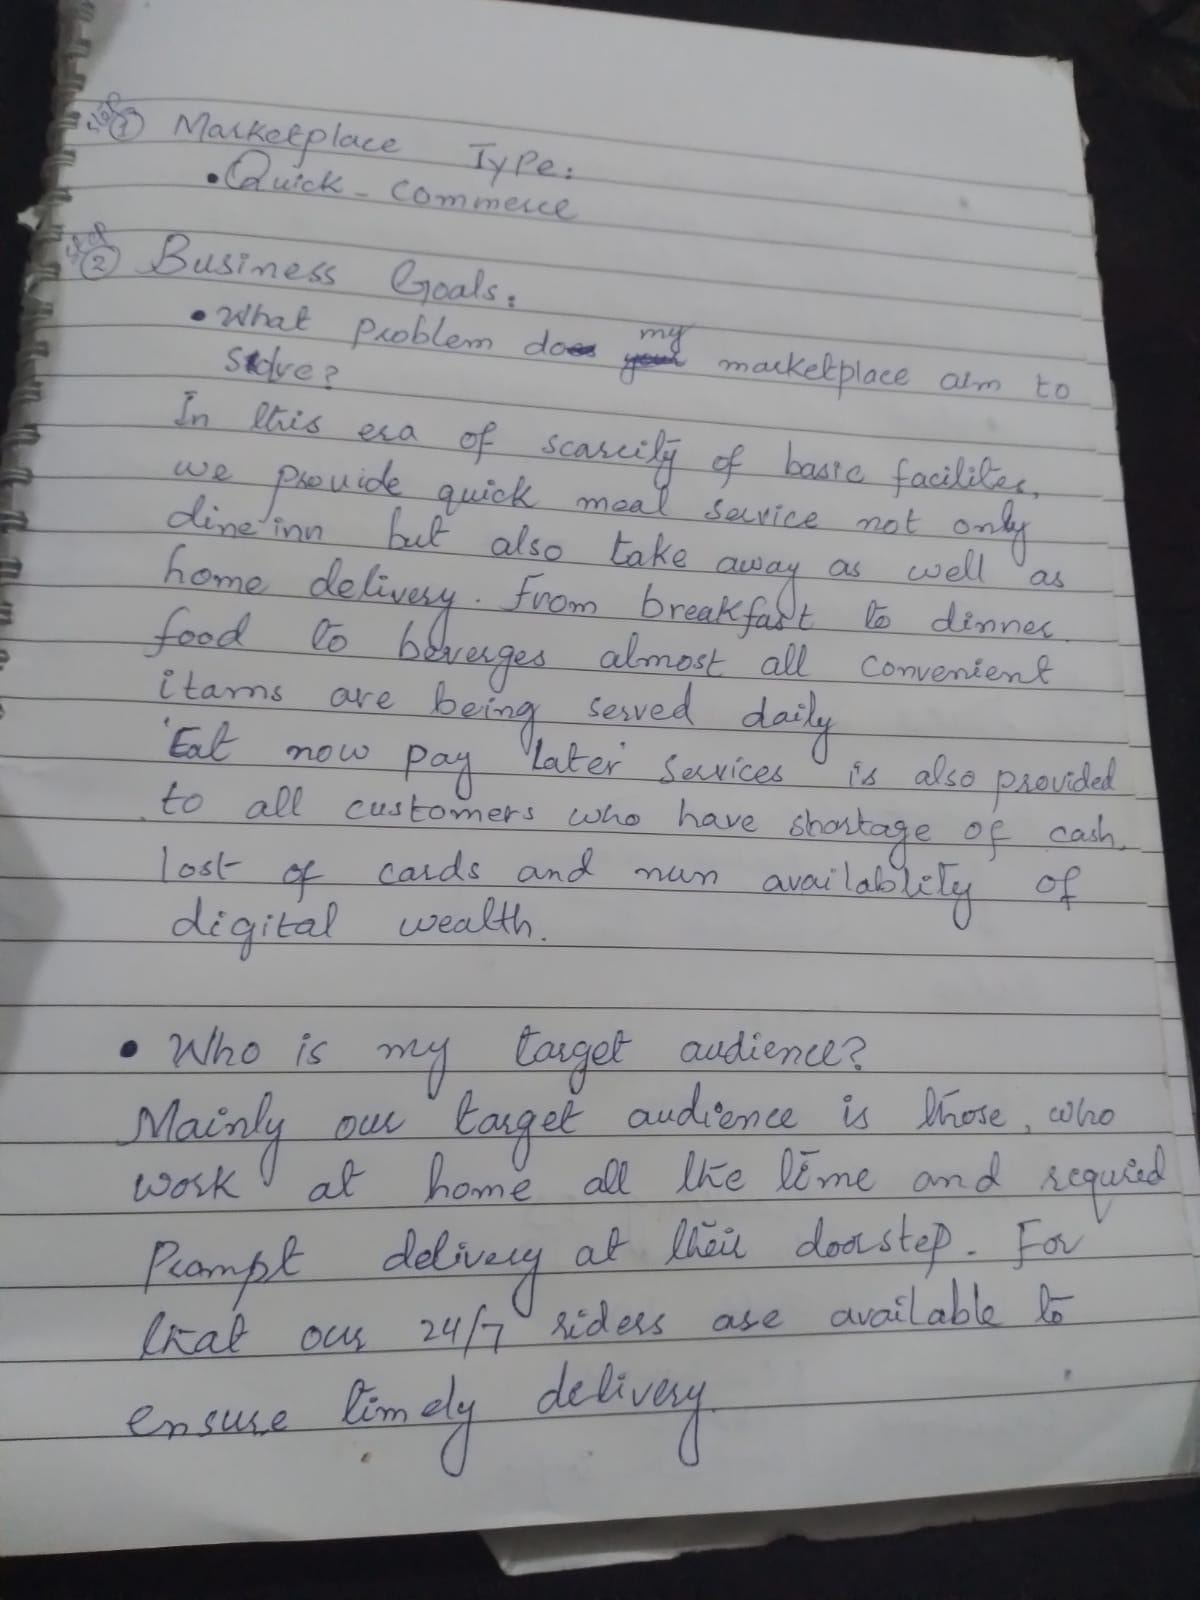 Step 1 Marketplace Type:
• Quick - Commerce
Step 2 Business Goals:
• What problem does my marketplace aim to
solve?
In this era of scarcity of basic facilites,
we provide quick meal service not only
dine inn but also take away as well as
home delivery. From breakfast to dinner
food to beverges almost all convenient
itams are being served daily
'Eat now pay later' services is also provided
to all customers who have shortage of cash,
lost of cards and nun availablity of
digital wealth.
• Who is my target audience?
Mainly our target audience is those, who
work at home all the time and requried
Prompt delivery at their doorstep. For
that our 24/7 riders are available to
ensure timely delivery.